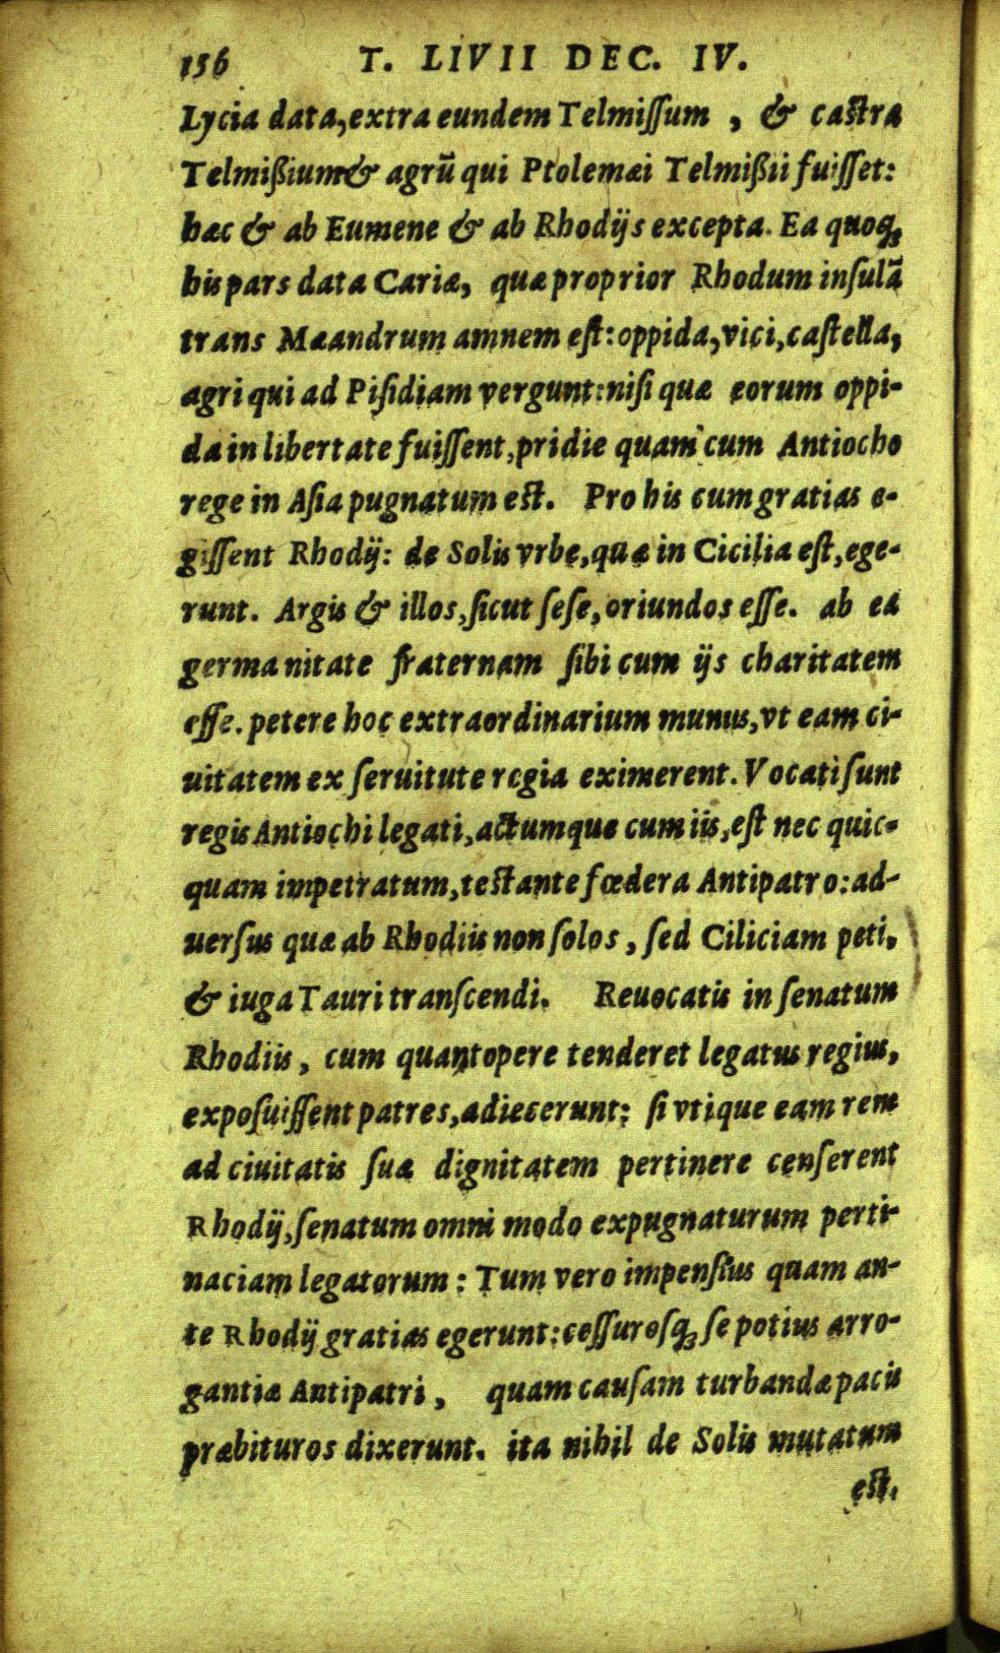 156 T. LIVII DEC. IV.
Lycia data, extra eundem Telmiſſum, & castra
Telmißium & agrū qui Ptolemæi Telmißii fuiſſet:
hæc & ab Eumene & ab Rhodijs excepta. Ea quoq;
his pars data Cariæ, quæ proprior Rhodum inſulā
trans Mæandrum amnem eſt: oppida, vici, caſtella,
agri qui ad Piſidiam vergunt: niſi quæ eorum oppi-
da in libertate fuiſſent, pridie quam cum Antiocho
rege in Aſia pugnatum est. Pro his cum gratias e-
giſſent Rhodij: de Solis vrbe, quæ in Cicilia eſt, ege-
runt. Argis & illos, ſicut ſeſe, oriundos eſſe. ab ea
germanitate fraternam ſibi cum ijs charitatem
eſſe. petere hoc extraordinarium munus, vt eam ci-
uitatem ex ſeruitute regia eximerent. Vocati ſunt
regis Antiochi legati, actumque cum iis, eſt nec quic-
quam impetratum, testante fœdera Antipatro: ad-
uerſus quæ ab Rhodiis non ſolos, ſed Ciliciam peti,
& iuga Tauri tranſcendi. Reuocatis in ſenatum
Rhodiis, cum quantopere tenderet legatus regius,
expoſuiſſent patres, adiecerunt: ſi vtique eam rem
ad ciuitatis ſuæ dignitatem pertinere cenſerent
Rhodij, ſenatum omni modo expugnaturum perti-
naciam legatorum: Tum vero impenſius quam an-
te Rhodij gratias egerunt: ceſſuroſq; ſe potius arro-
gantiæ Antipatri, quam cauſam turbandæ pacis
præbituros dixerunt. ita nihil de Solis mutatum
est,